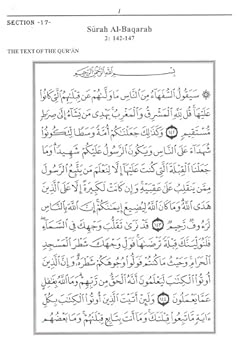 1
SECTION -17-
Sūrah Al-Baqarah
2: 142-147
THE TEXT OF THE QUR'ĀN
بِسْمِ ٱللَّهِ ٱلرَّحْمَٰنِ ٱلرَّحِيمِ
۞ سَيَقُولُ ٱلسُّفَهَآءُ مِنَ ٱلنَّاسِ مَا وَلَّىٰهُمْ عَن قِبْلَتِهِمُ ٱلَّتِى كَانُوا۟
عَلَيْهَا قُل لِّلَّهِ ٱلْمَشْرِقُ وَٱلْمَغْرِبُ يَهْدِى مَن يَشَآءُ إِلَىٰ صِرَٰطٍ
مُّسْتَقِيمٍ ١٤٢ وَكَذَٰلِكَ جَعَلْنَٰكُمْ أُمَّةً وَسَطًا لِّتَكُونُوا۟
شُهَدَآءَ عَلَى ٱلنَّاسِ وَيَكُونَ ٱلرَّسُولُ عَلَيْكُمْ شَهِيدًا وَمَا
جَعَلْنَا ٱلْقِبْلَةَ ٱلَّتِى كُنتَ عَلَيْهَآ إِلَّا لِنَعْلَمَ مَن يَتَّبِعُ ٱلرَّسُولَ
مِمَّن يَنقَلِبُ عَلَىٰ عَقِبَيْهِ وَإِن كَانَتْ لَكَبِيرَةً إِلَّا عَلَى ٱلَّذِينَ
هَدَى ٱللَّهُ وَمَا كَانَ ٱللَّهُ لِيُضِيعَ إِيمَٰنَكُمْ إِنَّ ٱللَّهَ بِٱلنَّاسِ
لَرَءُوفٌ رَّحِيمٌ ١٤٣ قَدْ نَرَىٰ تَقَلُّبَ وَجْهِكَ فِى ٱلسَّمَآءِ
فَلَنُوَلِّيَنَّكَ قِبْلَةً تَرْضَىٰهَا فَوَلِّ وَجْهَكَ شَطْرَ ٱلْمَسْجِدِ
ٱلْحَرَامِ وَحَيْثُ مَا كُنتُمْ فَوَلُّوا۟ وُجُوهَكُمْ شَطْرَهُۥ وَإِنَّ ٱلَّذِينَ
أُوتُوا۟ ٱلْكِتَٰبَ لَيَعْلَمُونَ أَنَّهُ ٱلْحَقُّ مِن رَّبِّهِمْ وَمَا ٱللَّهُ بِغَٰفِلٍ
عَمَّا يَعْمَلُونَ ١٤٤ وَلَئِنْ أَتَيْتَ ٱلَّذِينَ أُوتُوا۟ ٱلْكِتَٰبَ بِكُلِّ
ءَايَةٍ مَّا تَبِعُوا۟ قِبْلَتَكَ وَمَآ أَنتَ بِتَابِعٍ قِبْلَتَهُمْ وَمَا بَعْضُهُم